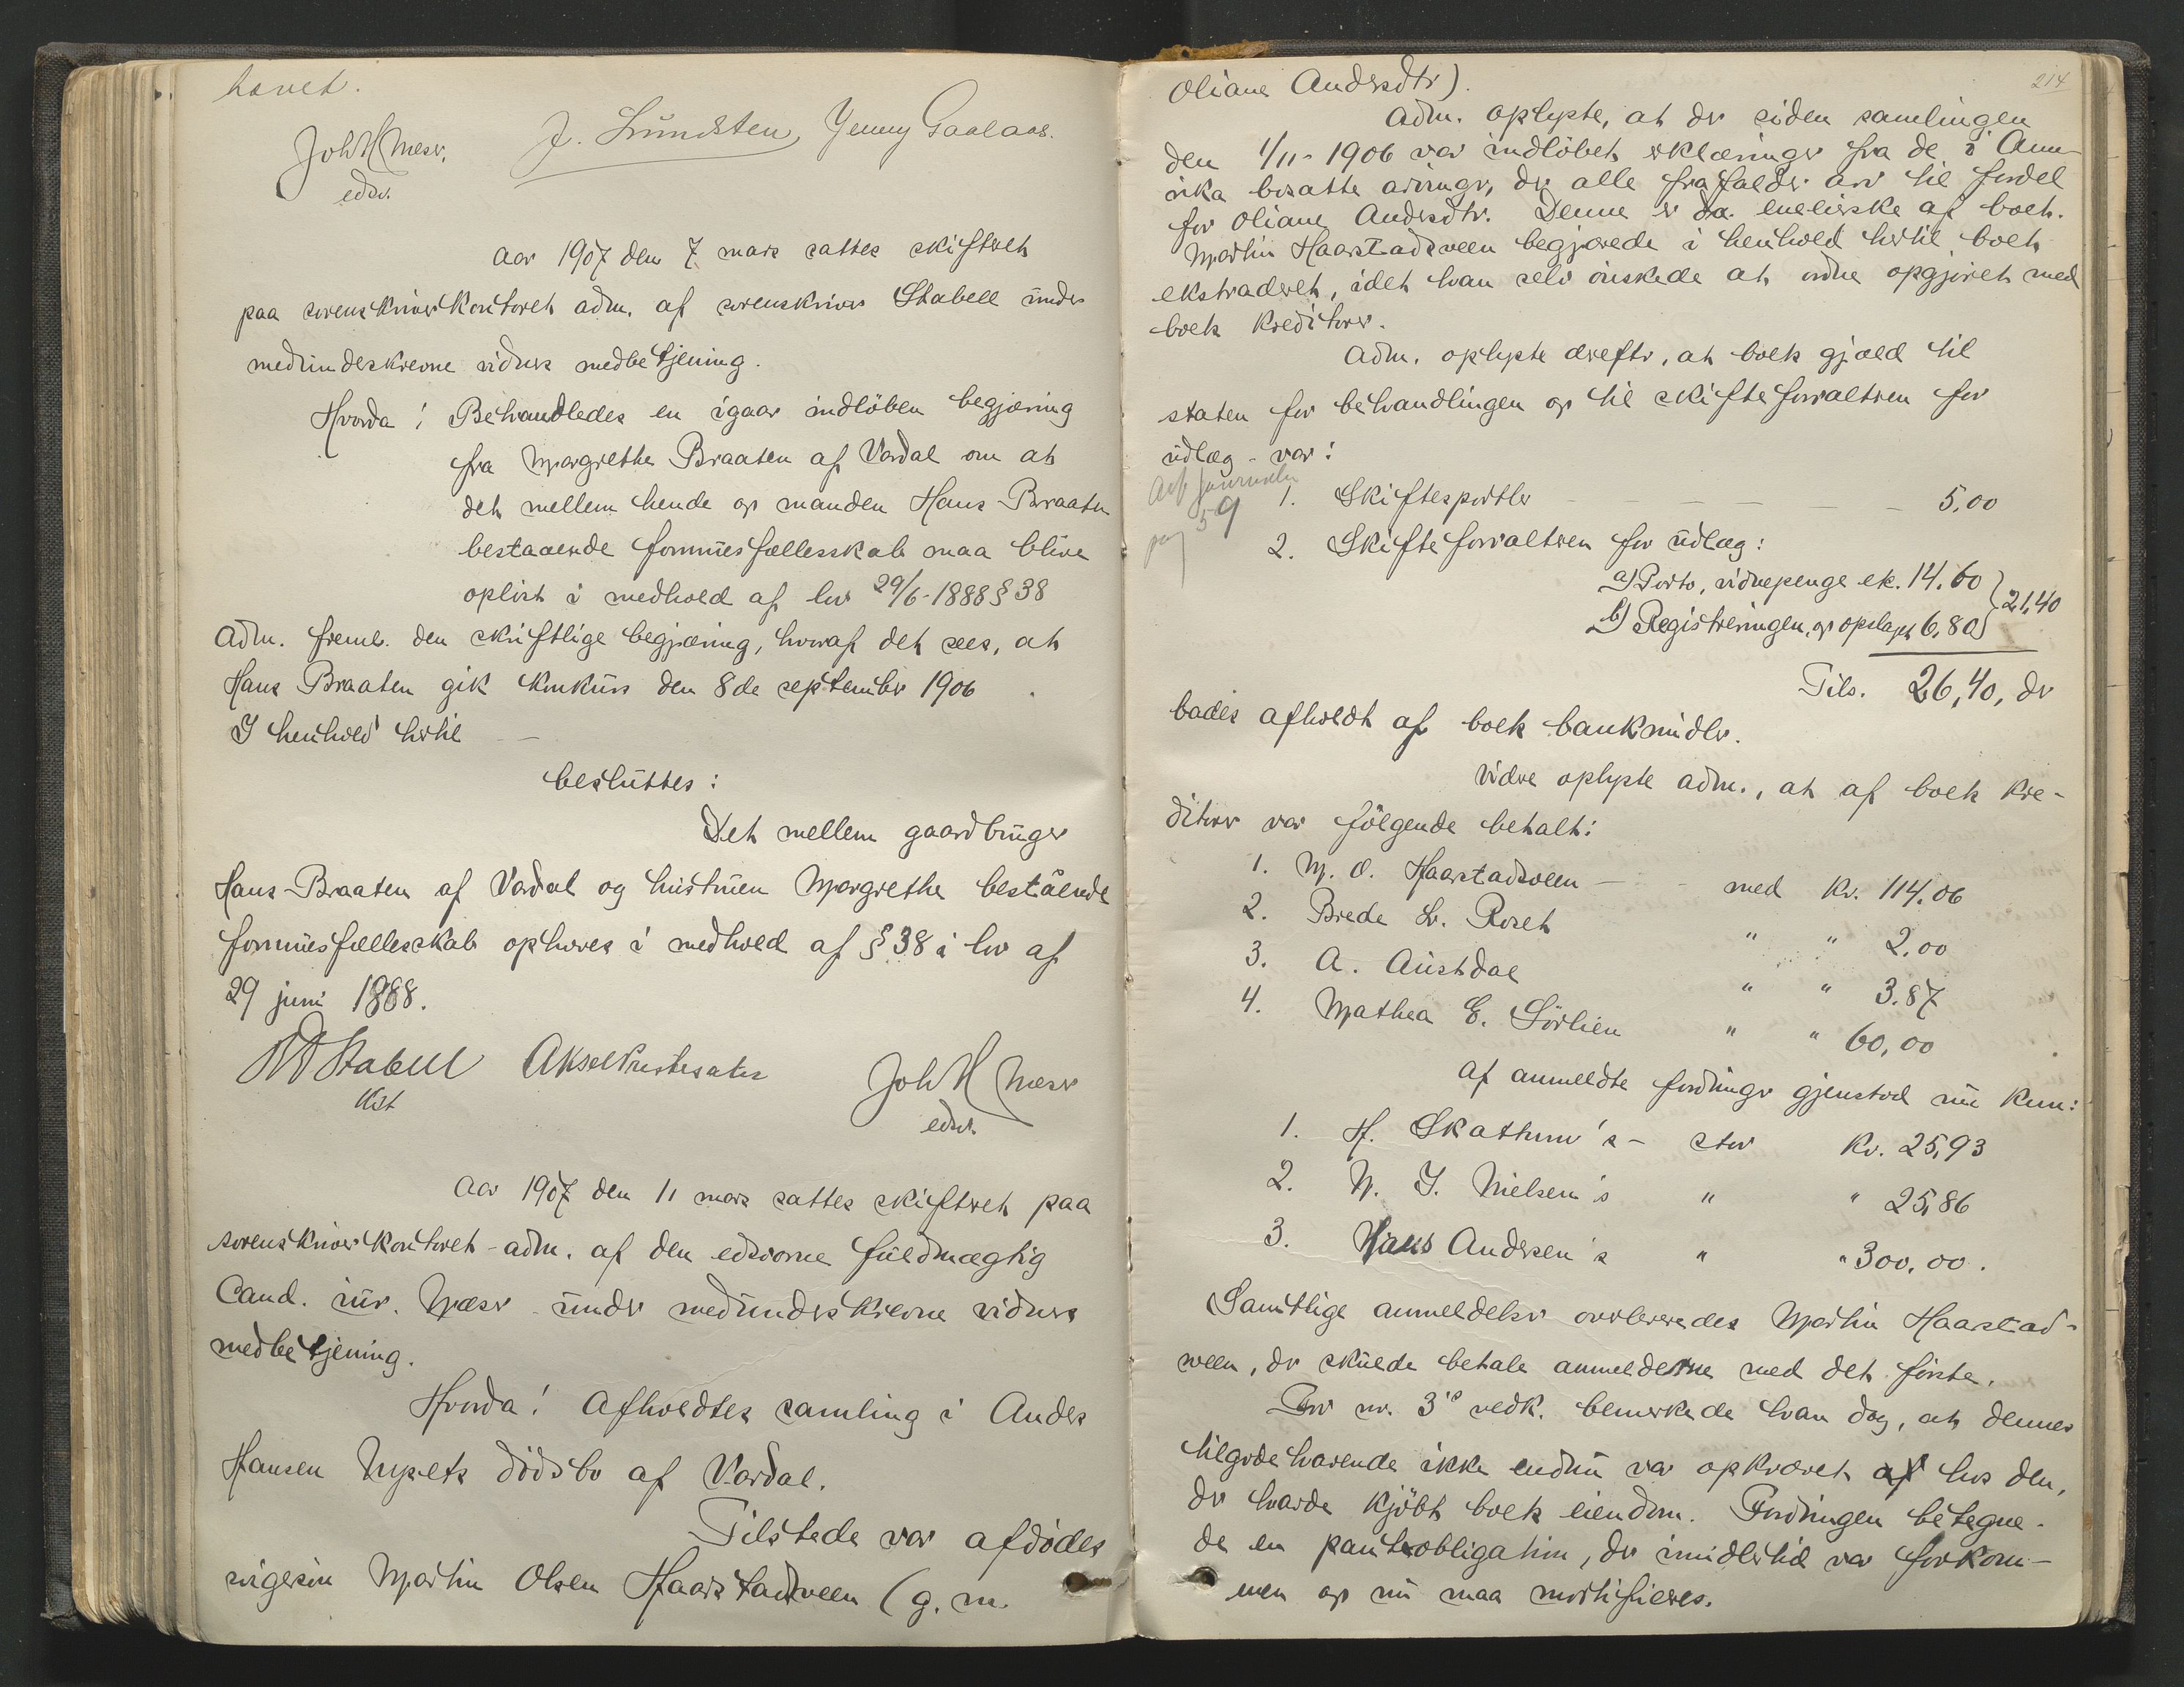 hævet.
Joh H Næser,
edsv.
J. Lundsten, Jenny Gaalaas.
Aar 1907 den 7 mars sattes skifteret
paa sorenskriverkontoret adm. af sorenskriver Stabell under
medunderskrevne vidners medbetjening.
Hvorda! Behandledes en igaar indløben begjæring
fra Margrethe Braaten af Vardal om at
det mellem hende og manden Hans Braaten
bestaaende formuesfællesskab maa blive
opløst i medhold af lov 29/6-1888 § 38
Adm. freml. den skriftlige begjæring, hvoraf det sees, at
Hans Braaten gik konkurs den 8de september 1906.
I henhold hertil —
besluttes:
Det mellem gaardbruger
Hans Braaten af Vardal og hustruen Margrethe bestående
formuesfællesskab ophæves i medhold af § 38 i lov af
29 juni 1888.
Stabell
Kst
Aksel
Joh H Næser
edsv.
Aar 1907 den 11 mars sattes skifteret paa
sorenskriverkontoret - adm. af den edsvorne fuldmægtig
Cand. jur. Næser - under medunderskrevne vidners
medbetjening.
Hvorda! Afholdtes samling i Anders
Hansen Myrets dødsbo af Vardal.
Tilstede var afdødes
svigersøn Martin Olsen Haarstadsveen (g. m.
214
Oliane Andersdtr).
Adm. oplyste, at der siden samlingen
den 1/11-1906 var indløbet erklæringer fra de i Ame-
rika bosatte arvinger, der alle frafalder arv til fordel
for Oliane Andersdtr. Denne er da enearving af boet.
Martin Haarstadsveen begjærede i henhold hertil boet
ekstraderet, idet han selv ønskede at ordne opgjøret med
boets kreditorer.
Adm. oplyste derefter, at boets gjæld til
staten for behandlingen og til skifteforvalteren for
udlæg - var:
Arf journalen
pag 59
1. Skiftesportler — — — — 5,00
2. Skifteforvalteren for udlæg:
a) Porto, vidnepenge etc. 14.60
b) Registreringen og opslaget 6,80
21,40
Tils. 26,40, der
bades afholdt af boets bankmidler.
Videre oplyste adm., at af boets kre-
ditorer var følgende betalt:
1. M. O. Haarstadsveen — - med kr. 114.06
2. Brede L. Roset " " 2.00
3. A. Austdal " " 3.87
4. Mathea E. Sørlien " " 60,00
Af anmeldte fordringer gjenstod nu kun:
1. H. Skattum's - stor kr. 25,93
2. N. J. Nielsen's " " 25,86
3. Hans Andersen's " " 300,00.
Samtlige anmeldelser overleveredes Martin Haarstad-
sveen, der skulde betale anmelderne med det første.
For nr. 3's vedk. bemerkede han dog, at dennes
tilgodehavende ikke endnu var opkrævet af hos den,
der havde kjøbt boets eiendom. Fordringen betegne-
de en panteobligation, der imidlertid var forkom-
men og nu maa mortifieres.